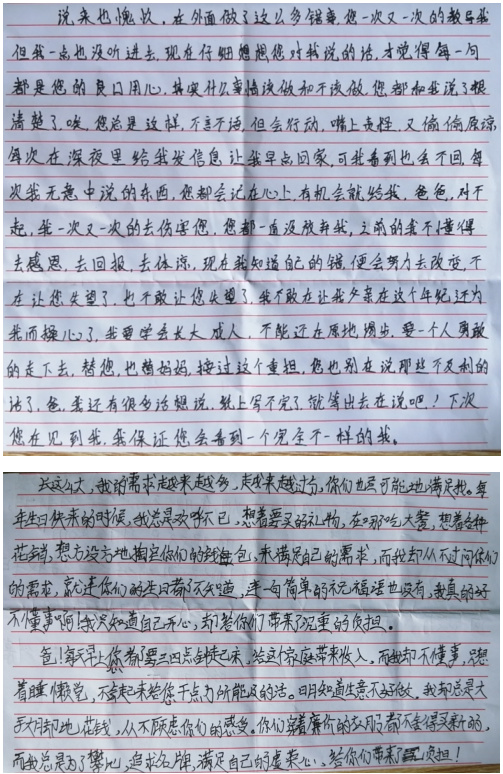 说来也愧疚，在外面做了这么多错事，您一次又一次的教导我
但我一点也没听进去，现在仔细想想您对我说的话，才觉得每一句
都是您的良口用心，其实什么事情该做和不该做，您都和我说了很
清楚了，唉，您总是这样，不言不语，但会行动，嘴上责怪，又偷偷原谅
每次在深夜里给我发信息让我早点回家，可我看到也会不回，每
次我无意中说的东西，您都会记在心上，有机会就给我，爸爸，对不
起，我一次又一次的去伤害您，您都一直没放弃我，之前的我不懂得
去感恩，去回报，去体谅，现在我知道自己的错，便会努力去改变，不
在让您失望了，也不敢让您失望了，我不敢在让我父亲在这个年纪，还为
我而操心了，我要学会长大成人，不能还在原地踏步，要一个人勇敢
的走下去，替您，也替妈妈，接过这个重担，您也别在说那些不及利的
话了，爸，我还有很多话想说，纸上写不完了，就等出去在说吧！下次
您在见到我，我保证您会看到一个完全不一样的我。
长这么大，我的需求越来越多，越来越过分，你们也尽可能地满足我。每
年生日快来的时候，我总是欢呼不已，想着要买的礼物，在哪吃大餐，想着各种
花销，想方设方地掏空你们的钱包，来满足自己的需求，而我却从不过问你们
的需求，就连你们的生日都不知道，连一句简单的祝福语也没有，我真的好
不懂事啊！我只知道自己开心，却给你们带来了沉重的负担。
爸！每天早上你都要三四点就起来，给这个家庭带来收入，而我却不懂事，只想
着睡懒觉，不会起来给您干点力所能及的活。明知道生意不好做，我却总是大
手大脚地花钱，从不顾虑你们的感受，你们穿着廉价的衣服都不舍得买新的，
而我总是为了攀比，追求名牌，满足自己的虚荣心，给你们带来了负担！